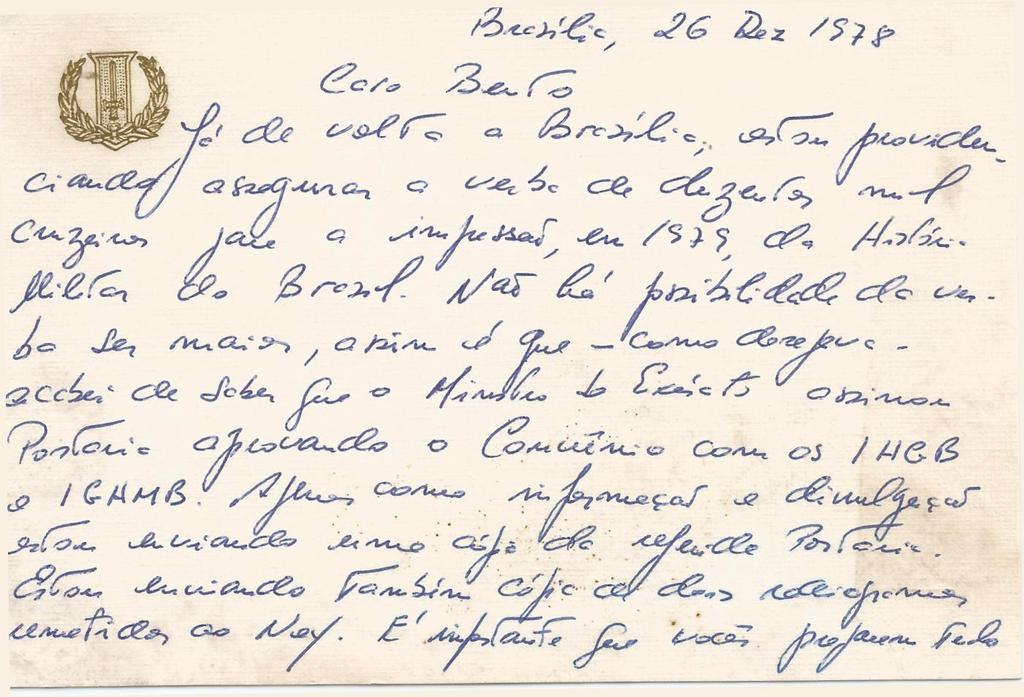 Brasília, 26 Dez 1978
Caro Bento
Já de volta a Brasília, estou providen-
ciando assegurar a verba de duzentos mil
cruzeiros para a impressão, em 1979, da História
Militar do Brasil. Não há possibilidade da ver-
ba ser maior, assim é que – como desejava –
acabei de saber que o Ministro do Exército assinou
Portaria aprovando o Convênio com os IHGB
e IGHMB. Apenas como informação e divulgação
estou enviando uma cópia da referida Portaria.
Estou enviando também cópia de dois radiogramas
remetidos ao Ney. É importante que vocês preparem tudo